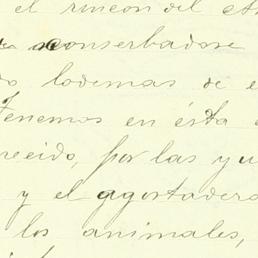 el rincon del
conserbadose
lodemas de
Tenemos en ésta
por las
y el agostadero
los animales,